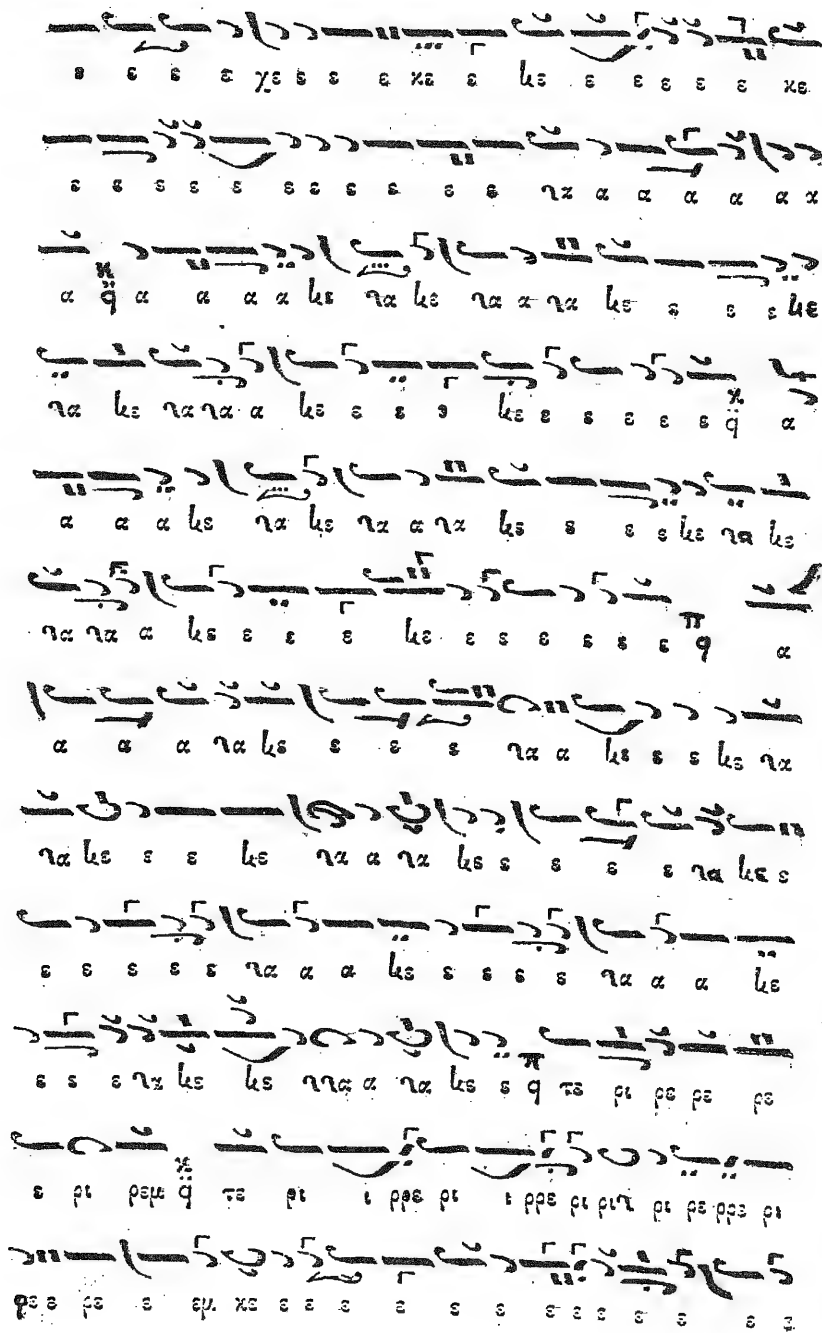 ε ε ε ε χε ε ε ε κε ε νε ε ε ε ε ε κε
ε ε ε ε ε ε ε ε ε ε ε να α α α α α α
α ϰ q α α α α νε να νε να α να νε ε ε ε νε
να νε να να α νε ε ε ε νε ε ε ε ε ε ϰ q α
α α α νε να νε να α να νε ε ε ε νε να νε
να να α νε ε ε ε νε ε ε ε ε ε ε π q α
α α α να νε ε ε ε να α νε ε ε νε να
να νε ε ε νε να α να νε ε ε ε ε να νε ε
ε ε ε ε ε να α α νε ε ε ε ε να α α νε
ε ε ε να νε νε ννα α να νε ε π q τε ρι ρε ρε ρε
ε ρι ρεμ ϰ q τε ρι ι ρρε ρι ι ρρε ρι ριν ρι ρε ρρε ρι
ρε ε ρε ε εμ κε ε ε ε ε ε ε ε ε ε ε ε ε ε